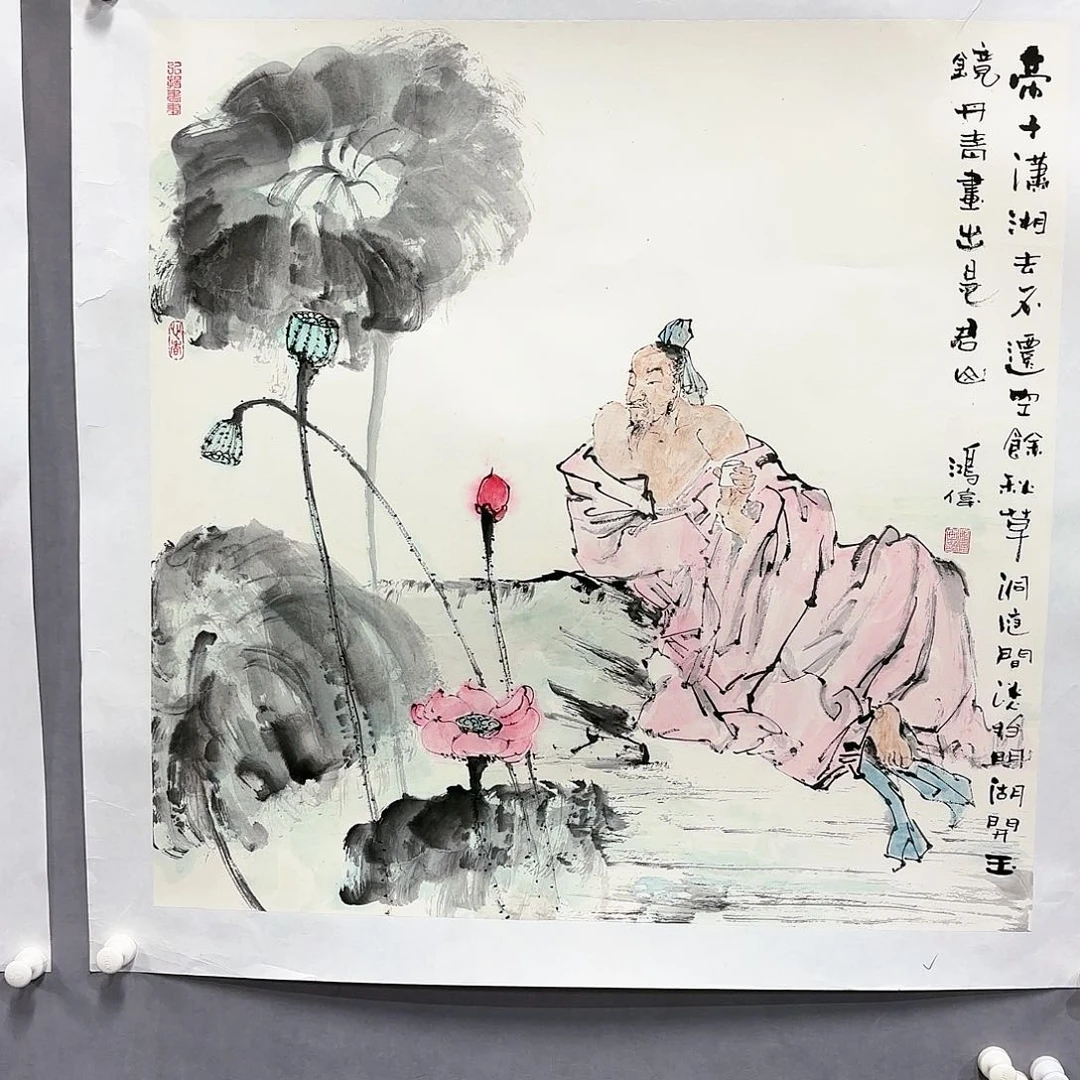 帝子瀟湘去不還空餘秋草洞庭間淡扫明湖開玉
鏡丹青畫出是君山
鴻